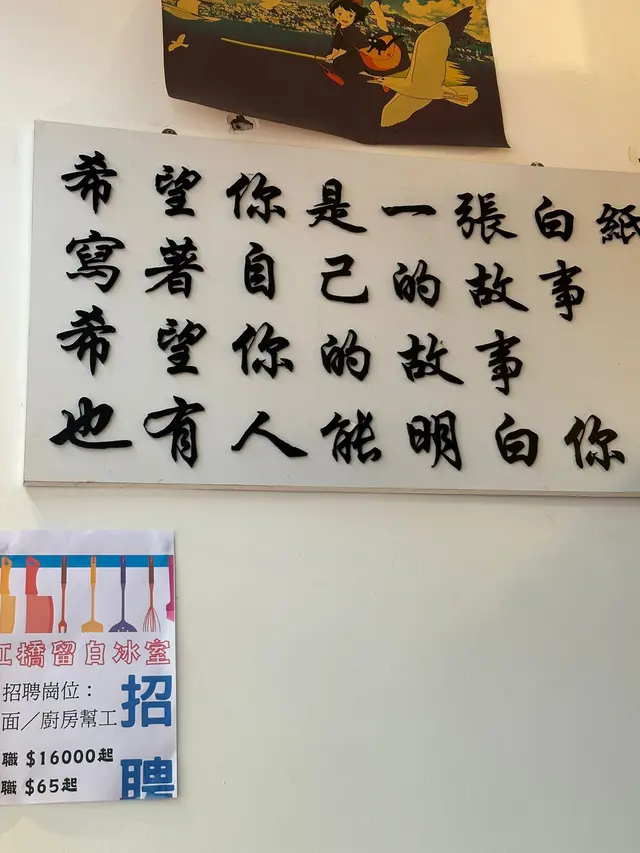 希望你是一張白紙
寫著自己的故事
希望你的故事
也有人能明白你
橋留白冰室
招聘崗位：
面／廚房幫工
職 $16000起
職 $65起
招聘